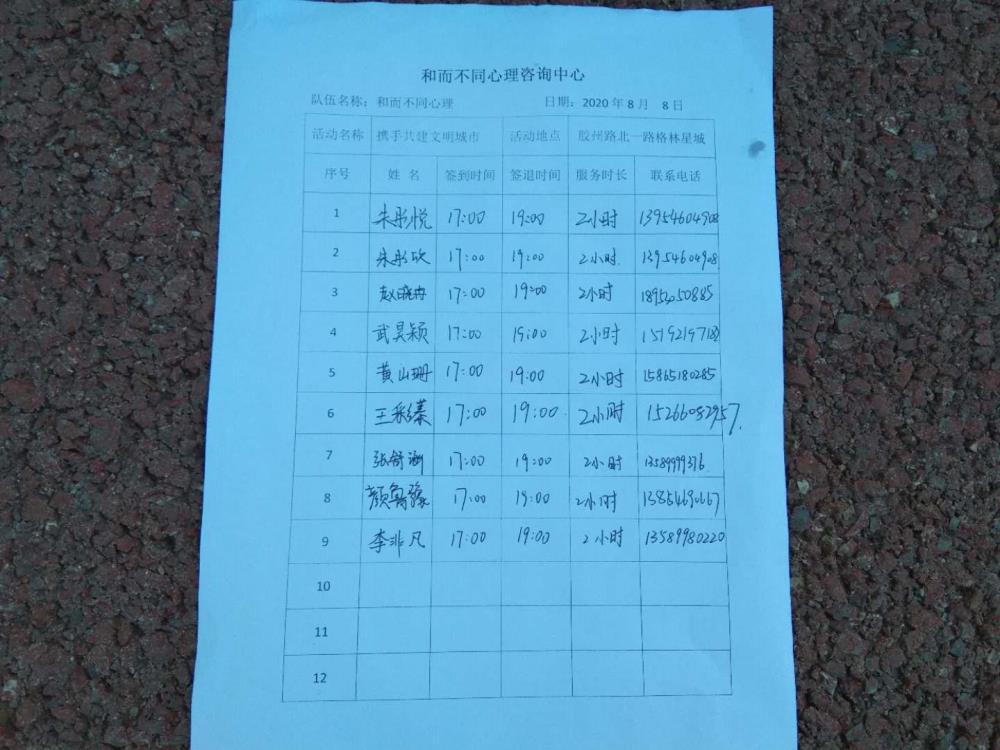 和而不同心理咨询中心
队伍名称：和而不同心理 日期：2020年8月 8日
活动名称 携手共建文明城市 活动地点 胶州路北一路格林星城
序号 姓 名 签到时间 签退时间 服务时长 联系电话
1 朱彤悦 17:00 19:00 2小时 13954604908
2 朱彤欣 17:00 19:00 2小时. 13954604908
3 赵晓冉 17:00 19:00 2小时
4 武昊颖 17:00 19:00 2小时
5 黄山珊 17:00 19:00 2小时 15865180285
6 王彩蓁 17:00 19:00. 2小时 15266082957.
7 张舒涵 17:00 19:00 2小时 13589999376
8 颜鲁豫 17:00 19:00 2小时
9 李非凡 17:00 19:00 2小时 13589980220
10
11
12